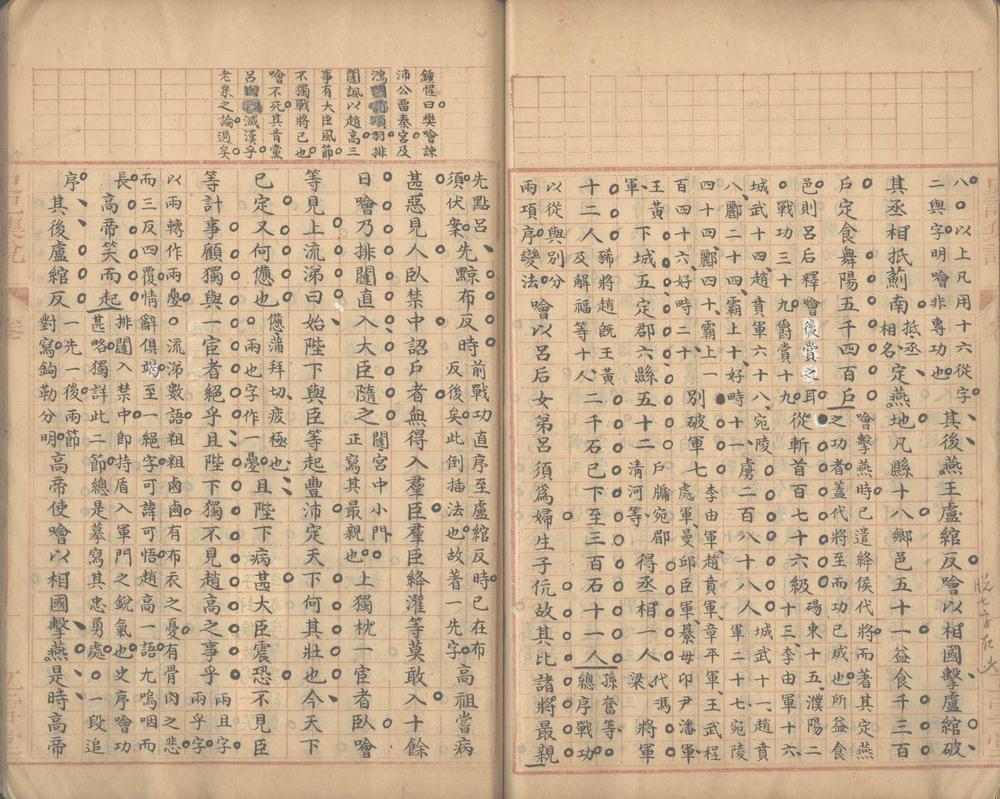 八〇以上凡用十六從字
二與字明噲非專功也
其後燕王盧綰反噲以相國擊盧綰破
其丞相抵薊南
抵丞
相名
定燕地凡縣十八鄉邑五十一益食千三百
戶定食舞陽五千四百戶
噲擊燕時已遣絳侯代將而著其定燕
之功者蓋代將至而功已成也所益食
邑則呂后釋噲後賞之耳
〇戰功三十九爵賞十九
從斬首百七十六級
碭東十五濮陽二
十三李由軍十六
城武十四趙賁軍六十八宛陵
八酈二十四霸上十好時十一
虜二百八十八人
城武十一趙賁
軍二十七宛陵
四十四酈四十霸上一
百四十六好時二十
別破軍七
李由軍趙賁軍章平軍王武程
處軍曼邱臣軍綦毋卬尹潘軍
王黃
軍
下城五定郡六縣五十二
戶牖宛郿
清河等
得丞相一人
代馮
梁
將軍
十二人
豨將趙旣王黃
及解福等十人
二千石已下至三百石十一人
孫奮等
總序戰功
以從與別分
兩項序變法
噲以呂后女弟呂須爲婦生子伉故其比諸將最親
鍾惺曰樊噲諫
沛公畱秦宮及
鴻 項羽排
闥諷以趙高三
事有大臣風節
不獨戰將已也
噲不死其肯黨
呂 滅漢乎
老泉之論過矣
先點呂
須伏案
先黥布反時
前戰功直序至盧綰反時已在布
反後矣此倒插法也故著一先字
高祖嘗病
甚惡見人臥禁中詔戶者無得入羣臣羣臣絳灌等莫敢入十餘
日噲乃排闥直入大臣隨之
闥宮中小門〇
正寫其最親也
上獨枕一宦者臥噲
等見上流涕曰始陛下與臣等起豐沛定天下何其壯也今天下
已定又何憊也
憊蒲拜切疲極也
〇兩也字作一㬪
且陛下病甚大臣震恐不見臣
等計事顧獨與一宦者絕乎且陛下獨不見趙高之事乎
兩且字
兩乎字
以兩轉作兩㬪〇流涕數語粗粗鹵鹵有布衣之憂有骨肉之悲
而三反四覆情辭俱竭至一絕字可諱可悟趙高一語尤嗚咽而
長
高帝笑而起
排闥入禁中即持盾入軍門之銳氣也史序噲功
甚略獨詳此二節總是摹寫其忠勇處〇一段追
序
其後盧綰反
一先一後兩節
對寫鉤勒分明
高帝使噲以相國擊燕是時高帝